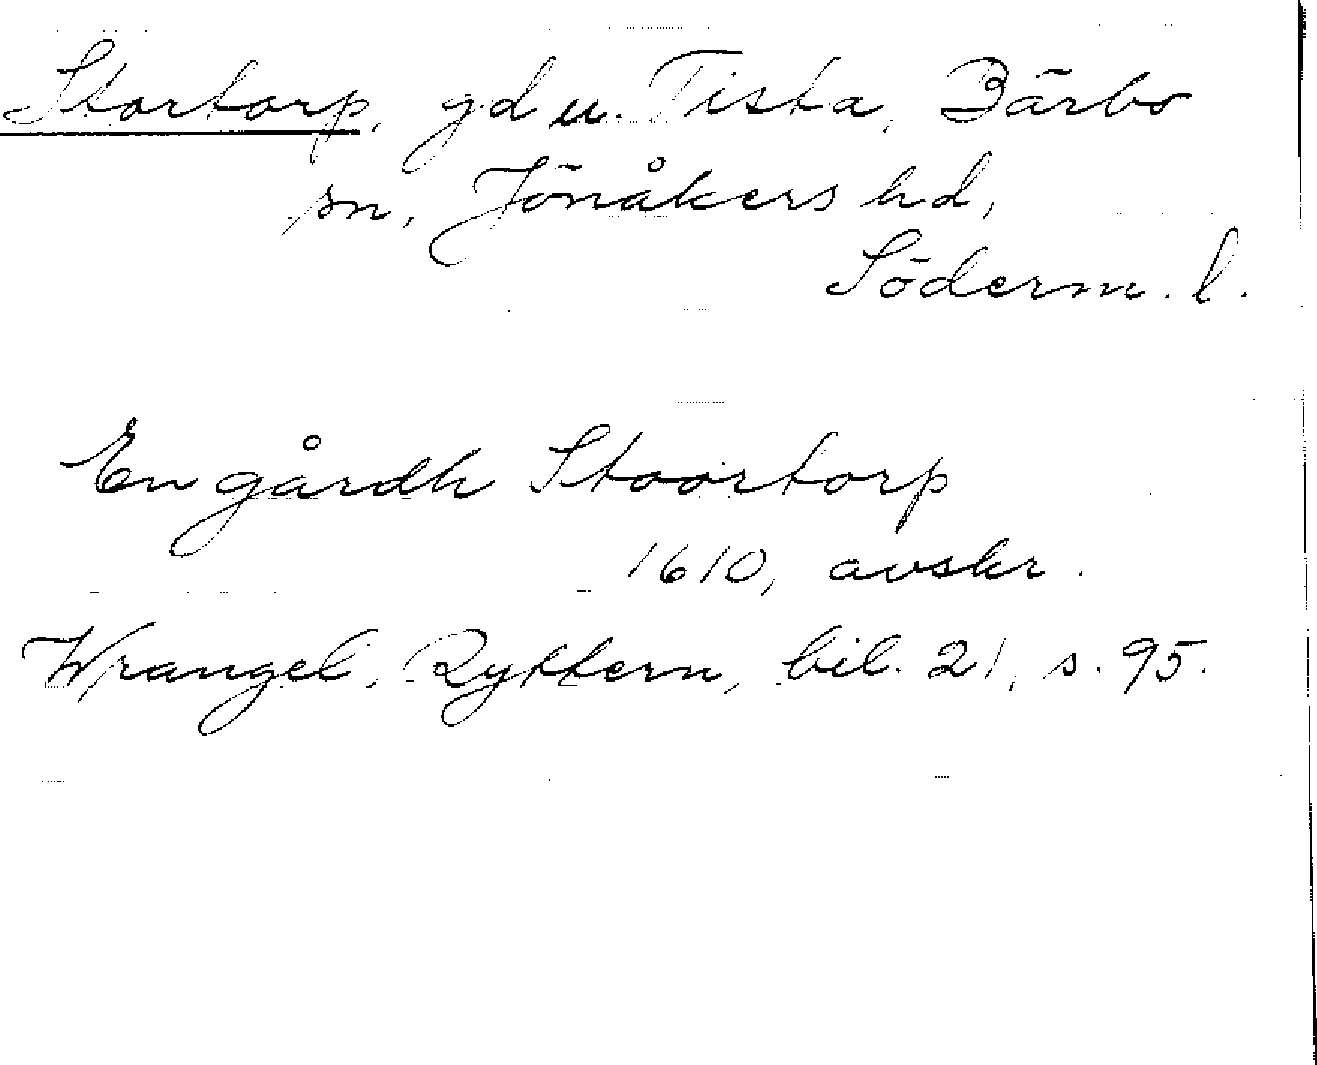 Stortorp, gd u. Tista, Bärbo
sn, Jönåkers hd,
Söderm. l.
En gårdh Stoortorp
1610, avskr.
Wrangel, Ryttern, bil. 21, s. 95.